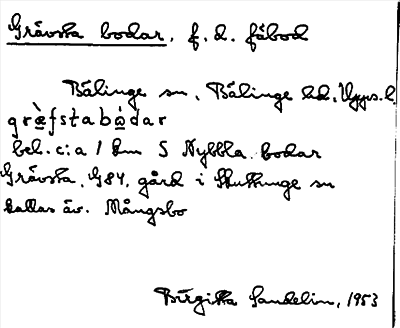 Grävsta bodar, f. d. fäbod
Bälinge sn, Bälinge hd, Upps. l.
græ̀fstabɷ̀dar
bel. c:a 1 km S Nybbla bodar
Grävsta, G84, gård i Skuttunge sn
kallas äv. Mångsbo
Birgitta Sandelin, 1953